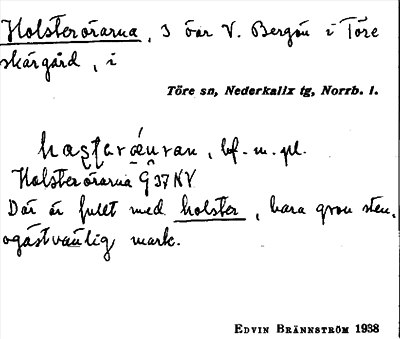 Holsterörarna, 3 öar V. Bergön i Töre
skärgård, i
Töre sn, Nederkalix tg, Norrb. l.
bf. m. pl.
Holsterörarna G 37 NV
Där är fullt med holster, bara grov sten,
ogästvänlig mark.
Edvin Brännström 1938